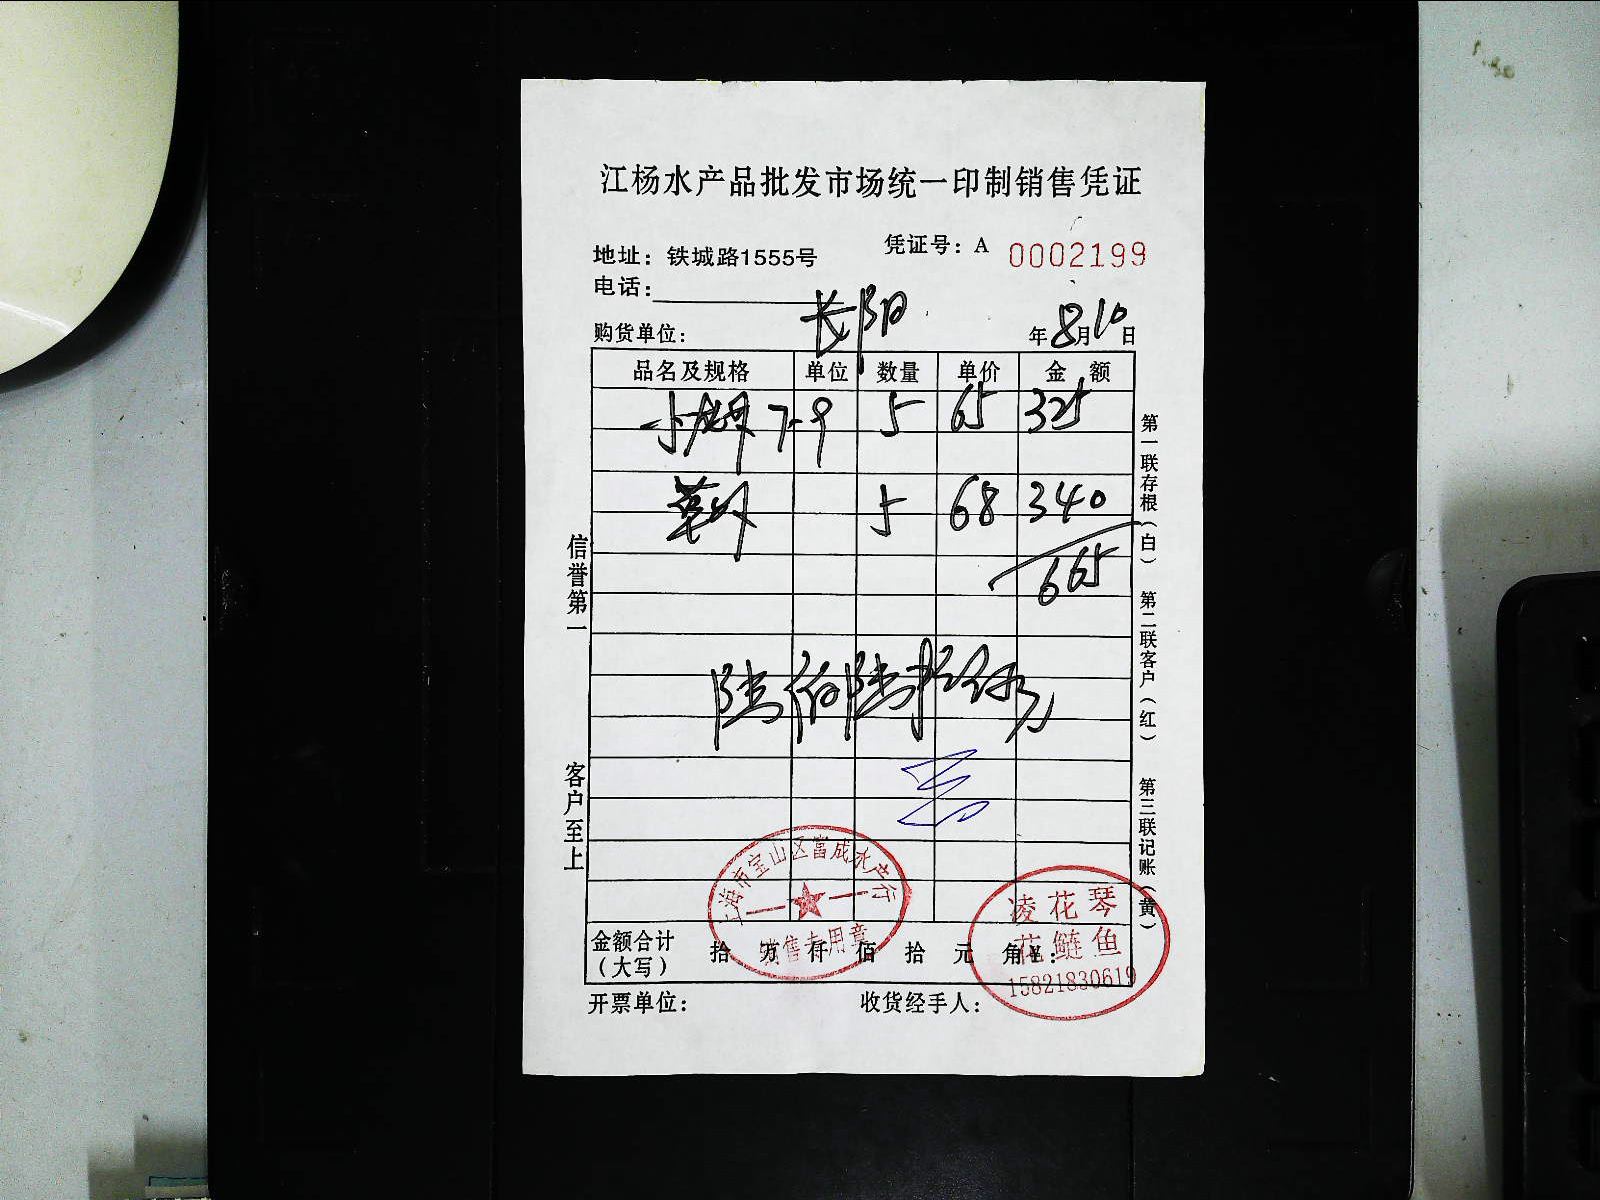 江杨水产品批发市场统一印制销售凭证
凭证号：A 0002199
地址：铁城路1555号
电话：
购货单位：长阳 年8月10日
品名及规格 单位 数量 单价 金额
小龙虾 7-9 5 65 325
5 68 340
665
陆佰陆拾伍元
信誉第一
客户至上
第一联存根（白） 第二联客户（红） 第三联记账（黄）
上海市宝山区富成水产行
销售专用章
凌花琴
花鲢鱼
15821830619
金额合计（大写） 拾 万 仟 佰 拾 元 角 ¥：
开票单位： 收货经手人：